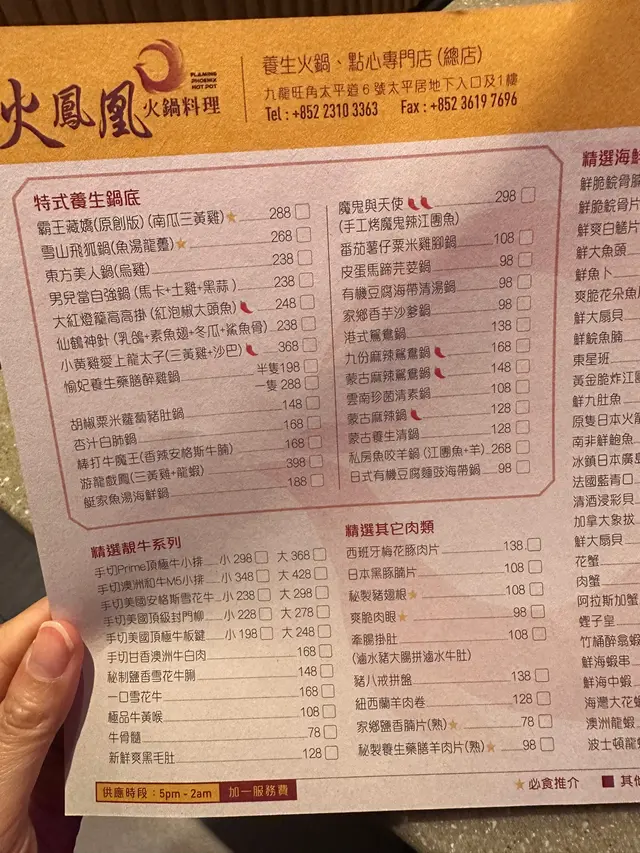 火鳳凰
火鍋料理
FLAMING
PHOENIX
HOT POT
養生火鍋、點心專門店 (總店)
九龍旺角太平道6號太平居地下入口及1樓
Tel : +852 2310 3363 Fax : +852 3619 7696
特式養生鍋底
霸王藏嬌(原創版) (南瓜三黃雞) 288
雪山飛狐鍋(魚湯龍躉) 268
東方美人鍋(烏雞) 238
男兒當自強鍋 (馬卡+土雞+黑蒜) 238
大紅燈籠高高掛 (紅泡椒大頭魚) 248
仙鶴神針 (乳鴿+素魚翅+冬瓜+鯊魚骨) 238
小黃雞愛上龍太子(三黃雞+沙巴) 368
愉妃養生藥膳醉雞鍋 半隻198
一隻 288
胡椒粟米蘿蔔豬肚鍋 148
杏汁白肺鍋 168
棒打牛魔王(香辣安格斯牛腩) 168
游龍戲鳳(三黃雞+龍蝦) 398
艇家魚湯海鮮鍋 188
魔鬼與天使 298
(手工烤魔鬼辣江團魚)
番茄薯仔粟米雞腳鍋 108
皮蛋馬蹄芫荽鍋 98
有機豆腐海帶清湯鍋 98
家鄉香芋沙爹鍋 98
港式鴛鴦鍋 138
九份麻辣鴛鴦鍋 168
蒙古麻辣鴛鴦鍋 148
雲南珍菌清素鍋 108
蒙古麻辣鍋 128
蒙古養生清鍋 128
私房魚咬羊鍋 (江團魚+羊) 268
日式有機豆腐麵豉海帶鍋 98
精選靚牛系列
手切Prime頂極牛小排 小 298 大 368
手切澳洲和牛M5小排 小 348 大 428
手切美國安格斯雪花牛 小 238 大 298
手切美國頂級封門柳 小 228 大 278
手切美國頂極牛板鍵 小 198 大 248
手切甘香澳洲牛白肉 168
秘制鹽香雪花牛脷 148
一口雪花牛 168
極品牛黃喉 108
牛骨髓 78
新鮮爽黑毛肚 128
精選其它肉類
西班牙梅花豚肉片 138
日本黑豚腩片 108
秘製豬翅根 108
爽脆肉眼 98
牽腸掛肚 108
(滷水豬大腸拼滷水牛肚)
豬八戒拼盤 138
紐西蘭羊肉卷 128
家鄉鹽香腩片(熟) 78
秘製養生藥膳羊肉片(熟) 98
精選海鮮
鮮脆鯇骨腩
鮮脆鯇魚片
鮮爽白鱔片
鮮大魚頭
鮮魚卜
爽脆花朵魚
鮮大扇貝
鮮鯇魚腩
東星班
黃金脆炸江團
鮮九肚魚
原隻日本火龍
南非鮮鮑魚
冰鎮日本廣島
法國藍青口
清酒浸彩貝
加拿大象拔
鮮大扇貝
花蟹
肉蟹
阿拉斯加蟹
蟶子皇
竹桶醉翁蝦
鮮海蝦串
鮮海中蝦
海灣大花蝦
澳洲龍蝦
波士頓龍蝦
供應時段：5pm - 2am 加一服務費
必食推介 其他